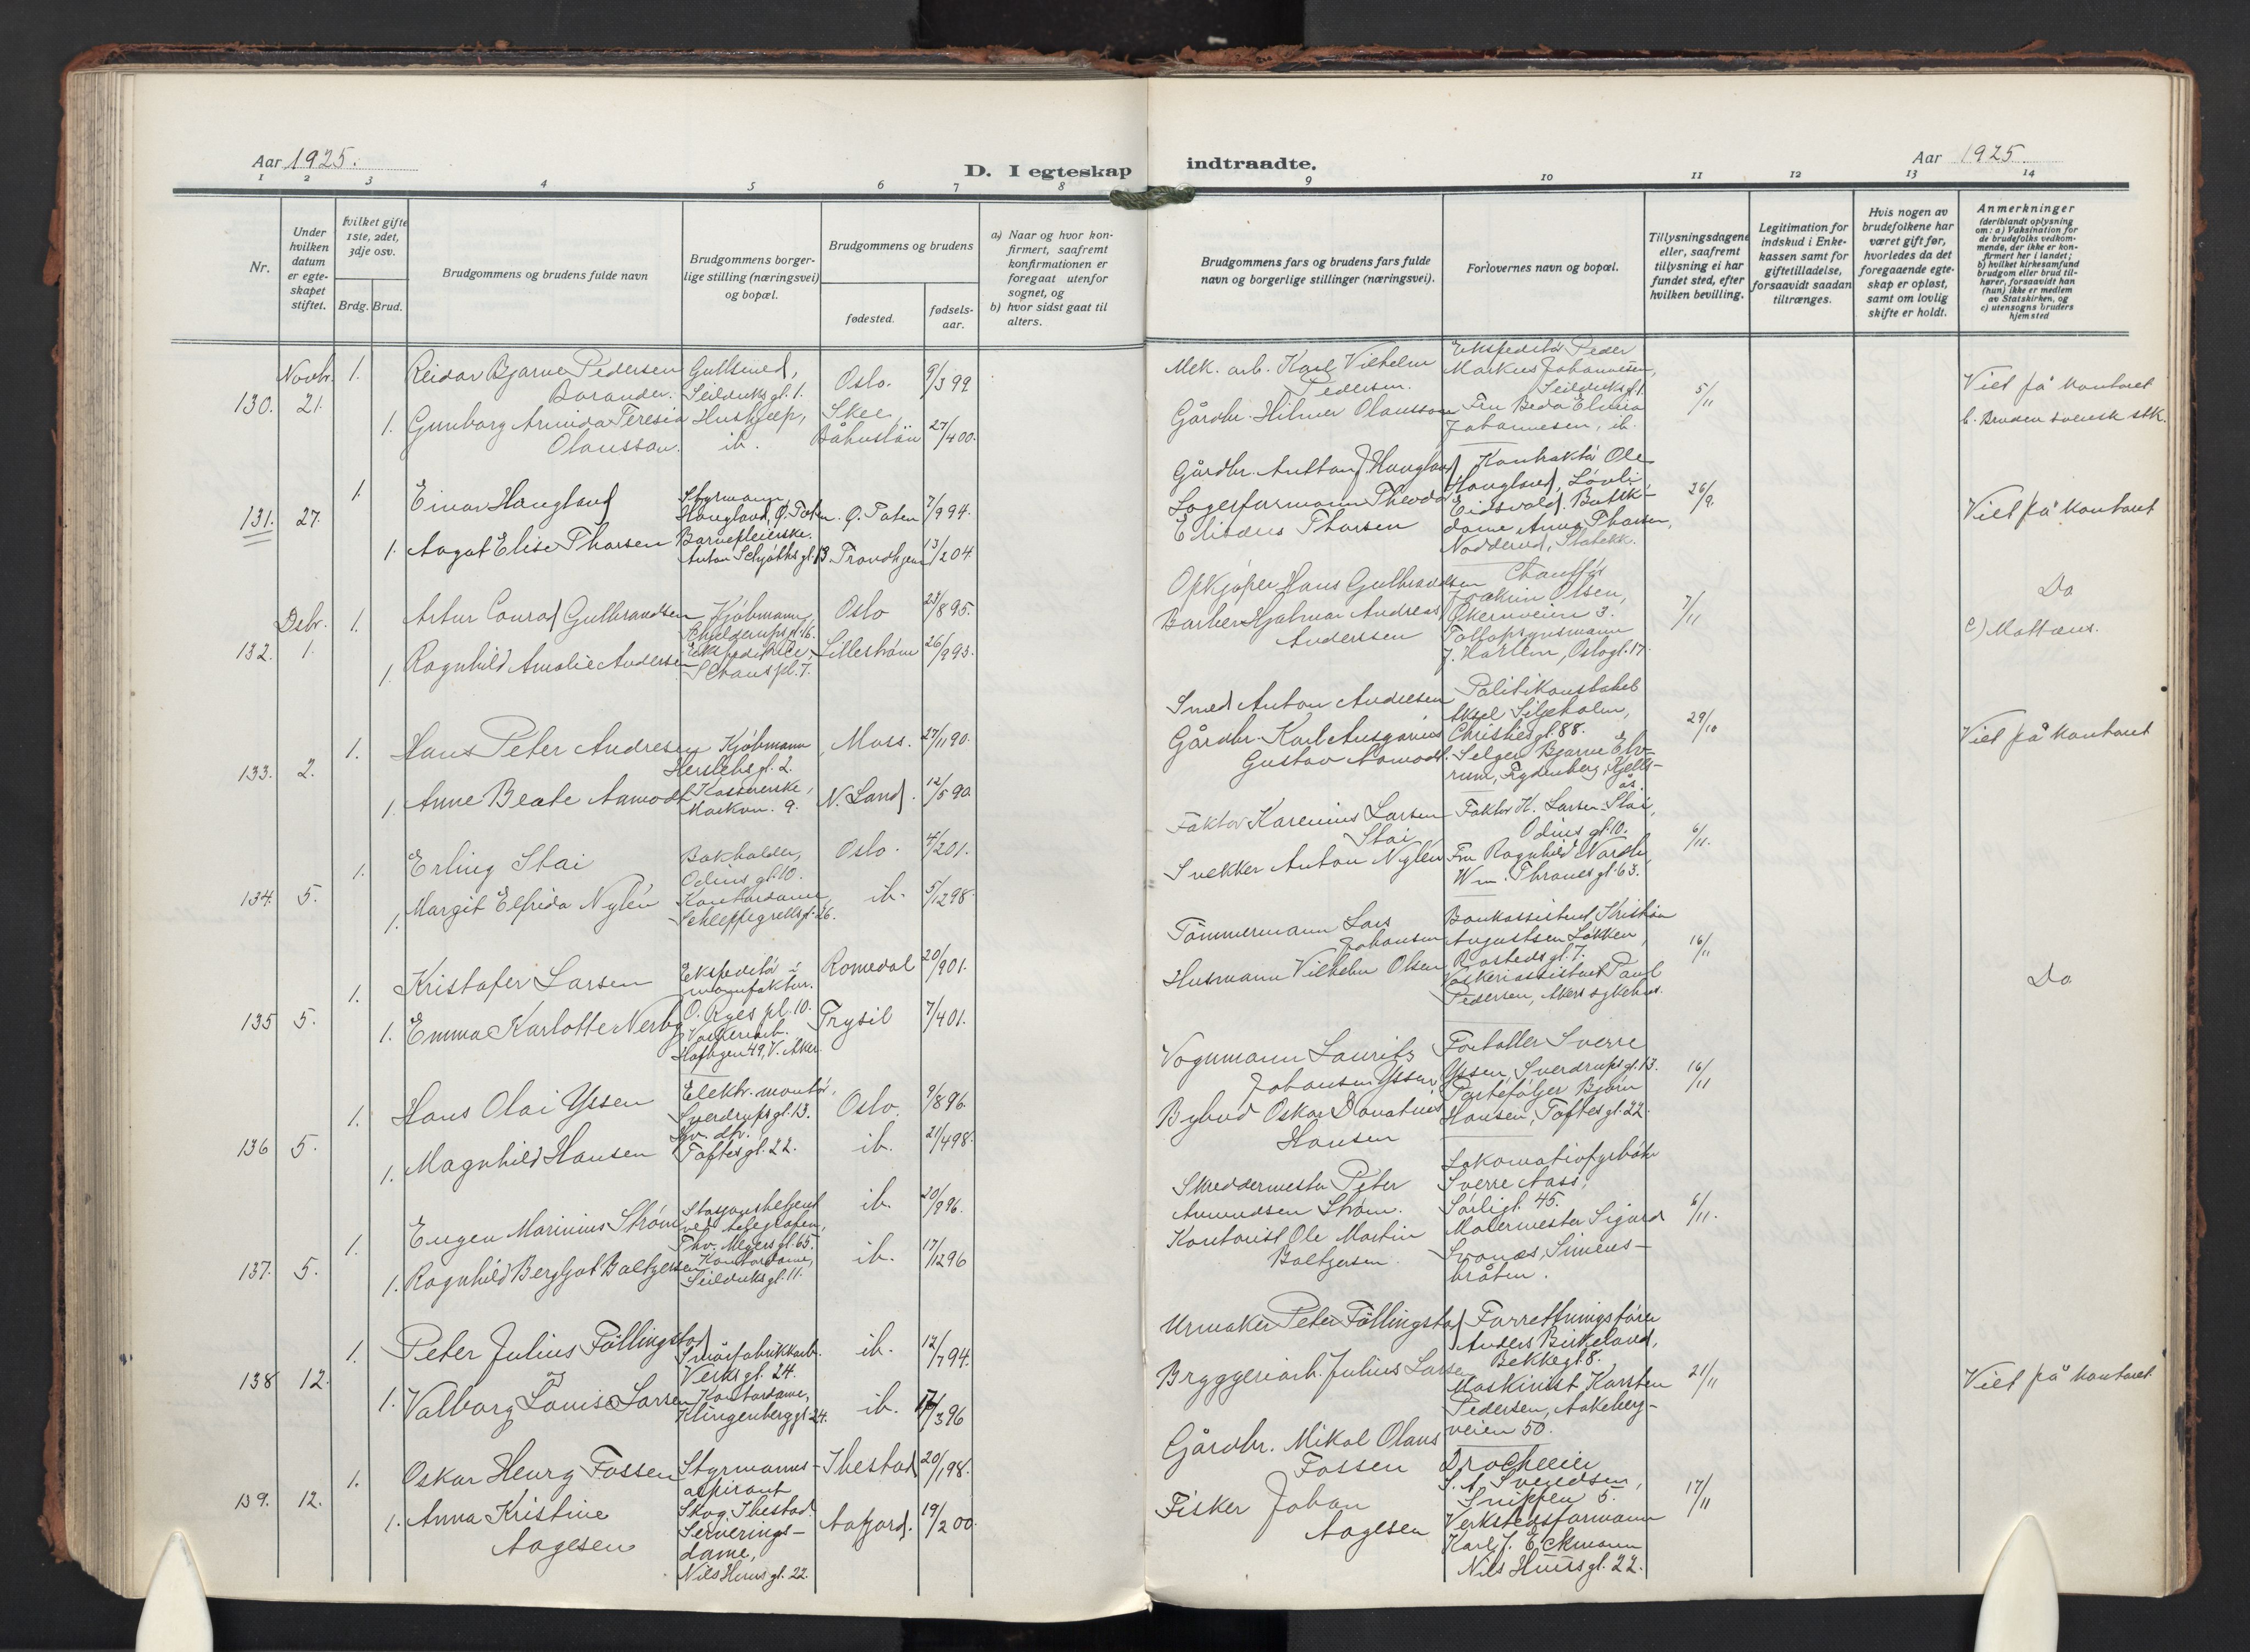 Aar 1925.
D. I egteskap indtraadte.
Aar 1925.
1 2 3 4 5 6 7 8 9 10 11 12 13 14
Nr.
Under hvilken datum er egteskapet stiftet.
hvilket gifte 1ste, 2det, 3dje osv.
Brdg. Brud.
Brudgommens og brudens fulde navn
Brudgommens borgerlige stilling (næringsvei) og bopæl.
Brudgommens og brudens
fødested.
fødselsaar.
a) Naar og hvor konfirmert, saafremt konfirmationen er foregaat utenfor sognet, og
b) hvor sidst gaat til alters.
Brudgommens fars og brudens fars fulde navn og borgerlige stillinger (næringsvei).
Forlovernes navn og bopæl.
Tillysningsdagene eller, saafremt tillysning ei har fundet sted, efter hvilken bevilling.
Legitimation for indskud i Enkekassen samt for giftetilladelse, forsaavidt saadan tiltrænges.
Hvis nogen av brudefolkene har været gift før, hvorledes da det foregaaende egteskap er opløst, samt om lovlig skifte er holdt.
Anmerkninger
(deriblandt oplysning om: a) Vaksination for de brudefolks vedkommende, der ikke er konfirmert her i landet; b) hvilket kirkesamfund brudgom eller brud tilhører, forsaavidt han (hun) ikke er medlem av Statskirken, og c) utensogns bruders hjemsted
130. Novbr. 21.
1. Reidar Bjarne Pedersen
Gullsmed, Seilduksgt. 1.
Oslo. 9/3 99
1. Gunborg Arinida Teresia Olausson.
Hushjelp, ib.
Skee, Båhuslän 27/4 00.
Mek. arb. Karl Vilhelm Pedersen.
Gårdbr. Hilmer Olausson
Ekspeditør Peder Markus Johannesen, Seilduksgt. 1
Fru Beda Elvira Johannesen, ib.
5/11
Viet på kontoret
b. Bruden svensk stk.
131. 27.
1. Einar Haugland
Styrmann, Haugland, Ø. Toten.
Ø. Toten 7/9 94.
1. Aagot Elise Thorsen
Barnepleierske. Anton Schjøthsgt. 13.
Trondhjem 13/2 04
Gårdbr. Anton J. Haugland
Lagerformann Theodor Elisæus Thorsen
Kontraktør Ole Haugland, Eidsvold.
Butikkdame Anna Thorsen, Nadderud, Stabekk.
26/9.
Viet på kontoret
132. Dsbr. 1.
1. Artur Conrad Gulbrandsen
Kjøbmann, Schulderupsgt. 16.
Oslo 23/8 95.
1. Ragnhild Amalie Andersen
Ekspeditrice, Schauspl. 7.
Lillestrøm 26/9 93.
Opkjøper Hans Gulbrandsen
Barber Hjalmar Andreas Anderssen
Chauffør Joakim Olsen, Økernveien 3.
Tollopsynsmann J. Harlem, Oslogt. 17.
7/11
Do
c) Mattæus.
133. 2.
1. Hans Peter Andresen
Kjøbmann, Herslebsgt. 2.
Moss. 27/11 90.
1. Anne Beate Aamodt
Kassererske, Markvn. 9.
N. Land. 12/5 90
Smed Anton Andresen
Gårdbr. Karl Ansgarius Gustav Aamodt.
Politikonstabel Aksel Siljeholm, Christiesgt. 88.
Selger Bjarne Elvrum, Frydenberg, Kjellsås.
29/10
Viet på kontoret
134. 5.
1. Erling Stai
Bokholder, Odinsgt. 10.
Oslo. 4/2 01.
1. Margit Elfrida Nylén
Kontordame Schleppegrellsgt. 26.
ib. 5/12 98.
Faktor Karenius Larsen Stai
Snekker Anton Nylén
Faktor K. Larsen-Stai, Odinsgt. 10.
Fru Ragnhild Nordli, Wm. Thranesgt. 63.
6/11.
135 5.
1. Kristofer Larsen
Ekspeditør i manufaktur. O. Ryes pl. 10.
Romedal 20/9 01.
1. Emma Karlotte Nerby
Vaskeriarb. Hafbgen 49, V. Aker
Trysil 7/4 01.
Tømmermann Lars Johansen
Husmann Vilhelm Olsen
Bankassistent Kristian Augustsen Løkken, Rostedsgt. 7.
Vaskeriassistent Paul Pedersen, Akers sykehus.
16/11
Do
136 5.
1. Hans Olai Yssen
Elektr. montør, Sverdrupsgt. 13.
Oslo. 9/8 96.
1. Magnhild Hansen
Hv. dtr. Toftesgt. 22.
ib. 21/4 98.
Vognmann Laurits Johansen Yssen
Bybud Oskar Donatius Hansen
Fortoller Sverre Yssen, Sverdrupsgt. 13.
Partéfølger Bjørn Hansen, Toftesgt. 22.
16/11
137. 5.
1. Eugen Marinius Strøm
Stasjonsbetjent ved telegrafen, Thv. Meyersgt. 65.
ib. 20/9 96.
1. Ragnhild Bergljot Baltzersen
Kontordame, Seilduksgt. 11.
ib. 17/12 96
Skreddermester Peter Amundsen Strøm.
Kontorist Ole Martin Baltzersen.
Lokomotivfyrbøter Sverre Aass, Sørligt. 45.
Malermester Sigurd Svanæs, Simensbråten.
6/11.
138 12.
1. Peter Julius Føllingstad
Smørfabrikkarb. Verksgt. 24.
ib. 12/7 94.
1. Valborg Louise Larsen
Kontordame, Klingenberggt. 24.
ib. 17/3 96
Urmaker Peter Føllingstad
Bryggeriarb. Julius Larsen
Forretningsfører Anders Birkeland, Bekkegt. 8.
Maskinist Karsten Pedersen, Aakebergveien 50.
21/11
Viet på kontoret
139. 12.
1. Oskar Henry Fossen
Styrmannsaspirant Skog, Ibestad.
Ibestad 20/1 98.
1. Anna Kristine Aagesen
Serveringsdame, Nils Huusgt. 22.
Aafjord. 19/2 00.
Gårdbr. Mikal Olaus Fossen
Fisker Johan Aagesen
Drocheeier S. A. Svendsen, Snippen 5.
Verkstedsformann Karl J. Eckmann Nils Huusgt. 22.
17/11